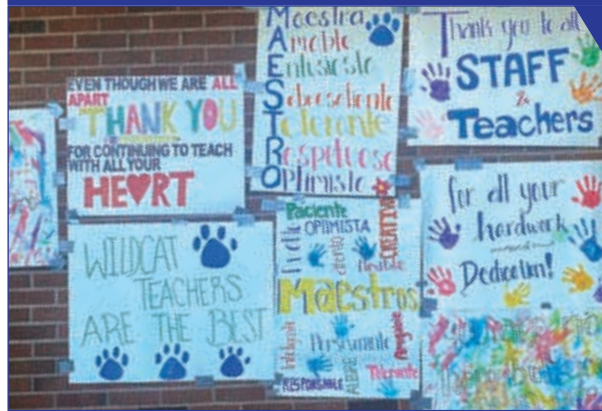 EVEN THOUGH WE ARE ALL
APART
THANK YOU
FOR CONTINUING TO TEACH
WITH ALL YOUR
HEART
WILDCAT
TEACHERS
ARE THE BEST
Maestra
Amable
Entusiasta
Sobresaliente
Tolerante
Respetuoso
Optimista
Paciente
OPTIMISTA
CREATIVO
flexible
Maestros
Perseverante
Amigable
RESPONSABLE
ALEGRE
Tolerante
Thank you to all
STAFF
&
Teachers
for all your
hardwork
Dedication!